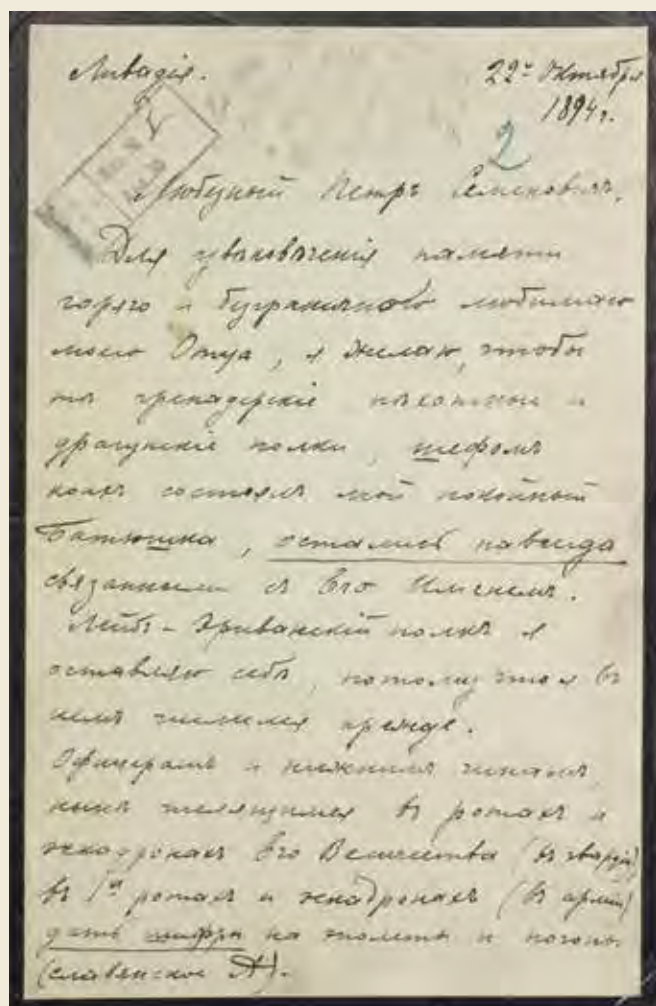 Ливадія.
22го Октября
1894 г.
2
Любезный Петръ Семеновичъ,
Для увѣковѣченія памяти
горячо и безгранично любимаго
моего Отца, я желаю, чтобы
тѣ гренадерскіе пѣхотные и
драгунскіе полки, шефомъ
коихъ состоялъ мой покойный
Батюшка, остались навсегда
связанными съ Его Именемъ.
Лейбъ-Эриванскій полкъ я
оставляю себѣ, потому что я въ
немъ числился прежде.
Офицерамъ и нижнимъ чинамъ,
нынѣ числящимся въ ротахъ и
эскадронахъ Его Величества (въ гвардіи)
въ 1хъ ротахъ и эскадронахъ (въ арміи)
дать шифры на эполеты и погоны
(славянское А).